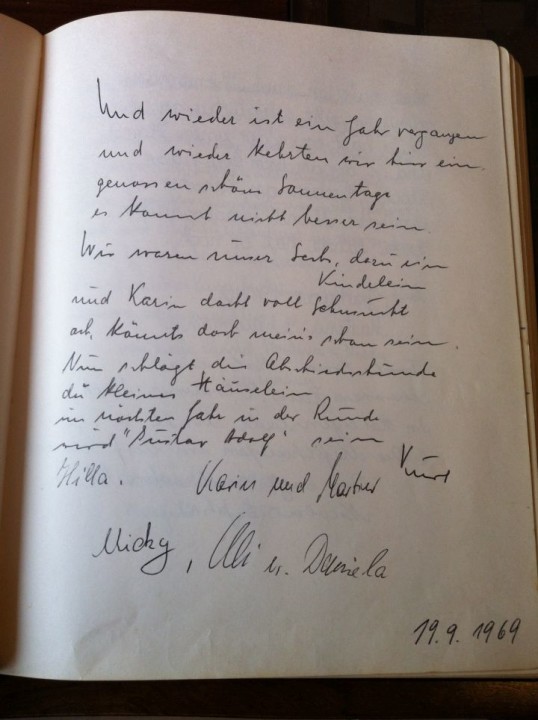 Und wieder ist ein Jahr vergangen
und wieder kehrten wir hier ein.
genossen schöne Sonnentage
es kommt nicht besser sein.
Wir waren unser Sech, dazu ein
Kindelein
und Karin dacht voll Sehnsucht
ach, könnts doch meins schon sein.
Nun schlägt die Abschiedsstunde
du kleines Häuselein
im nächsten Jahr in der Runde
wird "Gustav Adolf" sein
Hilla. Karin und Martin Kurt
Micky, Uli u. Daniela
19.9.1969